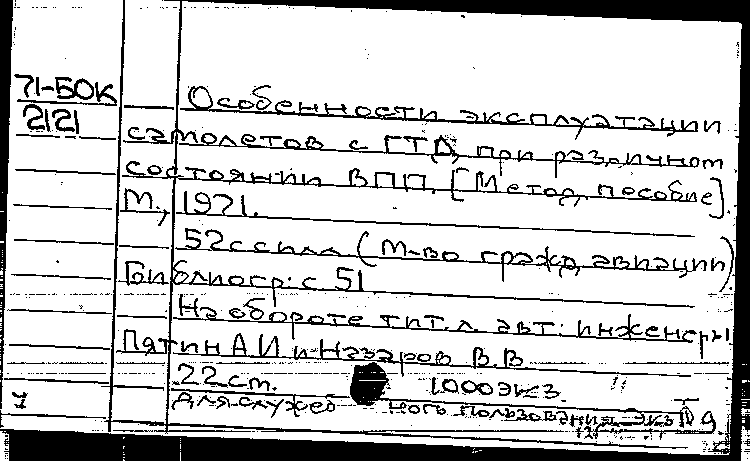 71-БОК
2121
Особенности эксплуатации
самолетов с ГТД, при различном
состоянии ВПП. [Метод, пособие].
М., 1971.
52с силл. (М-во гражд, авиации)
Библиогр: с 51
На обороте тит.л. авт: инженеры
Пятин А.И и Назаров В.В.
22см. 1000экз.
Для служеб ного пользования. Экз № 9.